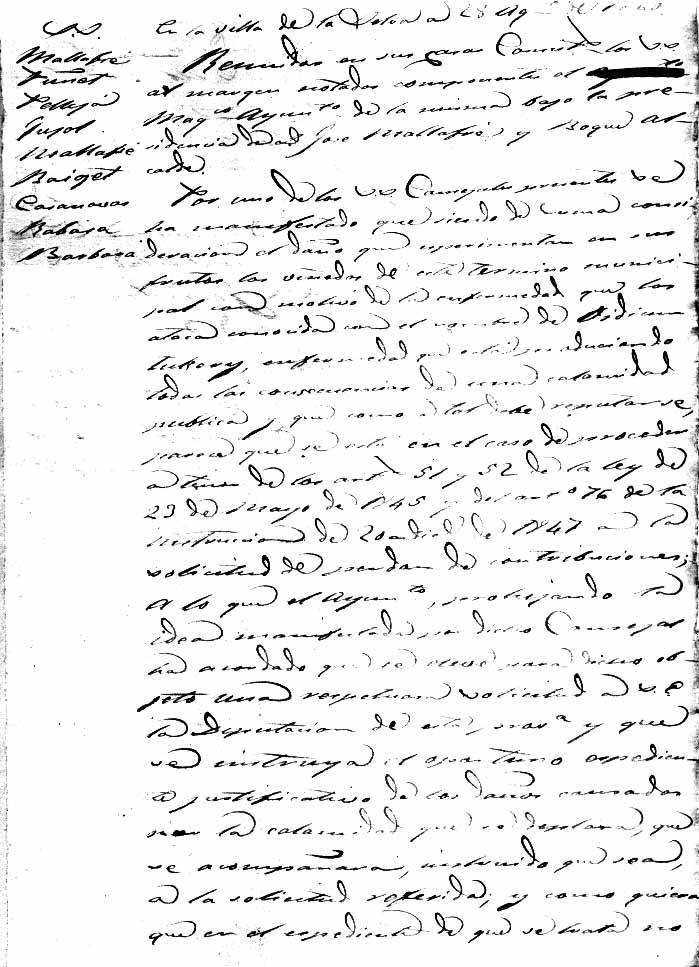 S.S.
Mallafré
Fusset
Pellejá
Gusol
Mallafré
Baiget
Casanovas
Rabasa
Barbará
En la villa de la Selva a 28 Ag
Reunidos en sus casas Consist.s los S.S.
al margen notados componentes el
Mag.co Ayun.to de la misma bajo la pre-
sidencia de d. José Mallafré y Roque al-
calde.
Por uno de los S.S. Concejales presentes se
ha manifestado que siendo de suma consi-
deracion el daño que esperimentan en sus
frutos los viñedos de este termino munici-
pal con motivo de la enfermedad que los
ataca conocida con el nombre de Oidium
tukery, enfermedad que está produciendo
todas las consecuencias de una calamidad
publica y que como á tal debe reputarse,
parece que se está en el caso de proceder
a tenor de los art.s 51 y 52 de la ley de
23 de Mayo de 1845 y del art.o 76 de la
instruccion de 20 de 1847 a la
solicitud de perdon de contribuciones;
A lo que el Ayun.to, prohijando la
idea manifestada por dicho Concejal
ha acordado que se eleve para dicho ob-
jeto una respetuosa solicitud a S.E.
la Diputacion de esta prov.a y que
se instruya el oportuno espedien-
te justificativo de los daños causados
por la calamidad que se deplora, que
se acompañará, instruido que sea,
a la solicitud referida; y como quiera
que en el espediente de que se trata no